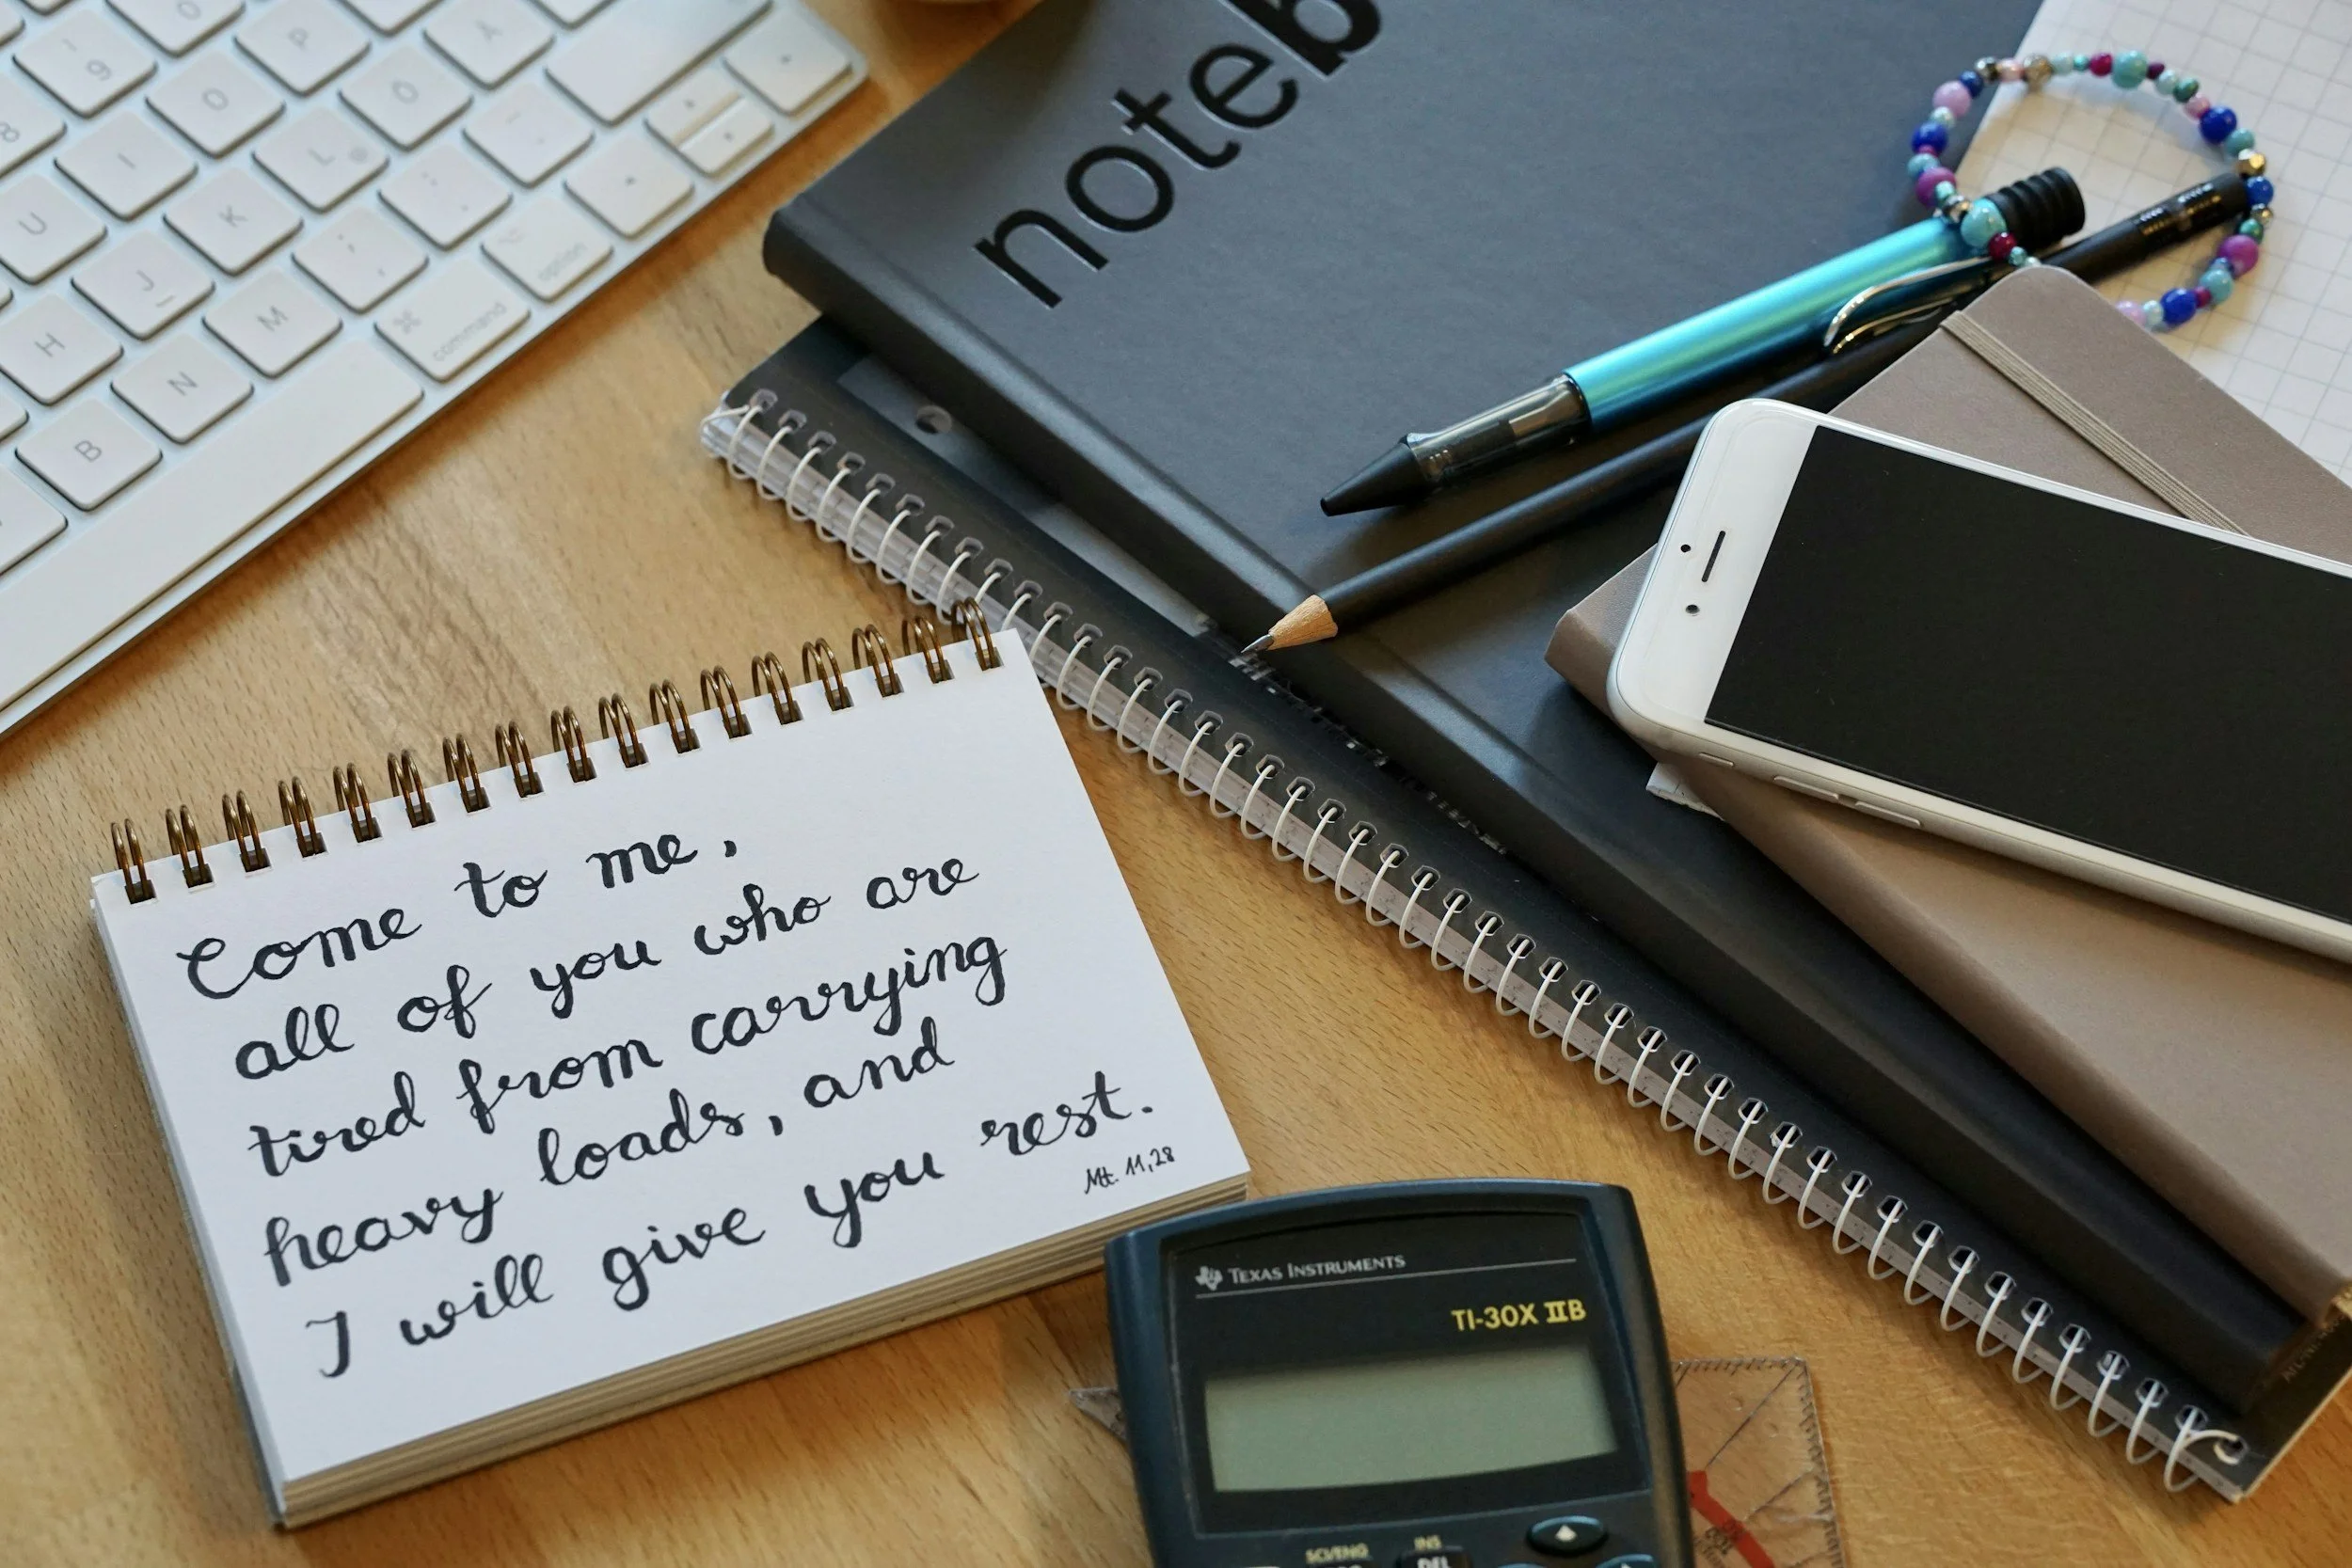 noteb
Come to me,
all of you who are
tired from carrying
heavy loads, and
I will give you rest.
Mt. 11,28
TEXAS INSTRUMENTS
TI-30X IIB
SCI/ENG
INS
DEL
9
O
P
Å
8
I
O
L @
Ö
U
K
J
H
M
N
B
⌘
command
⌥
option